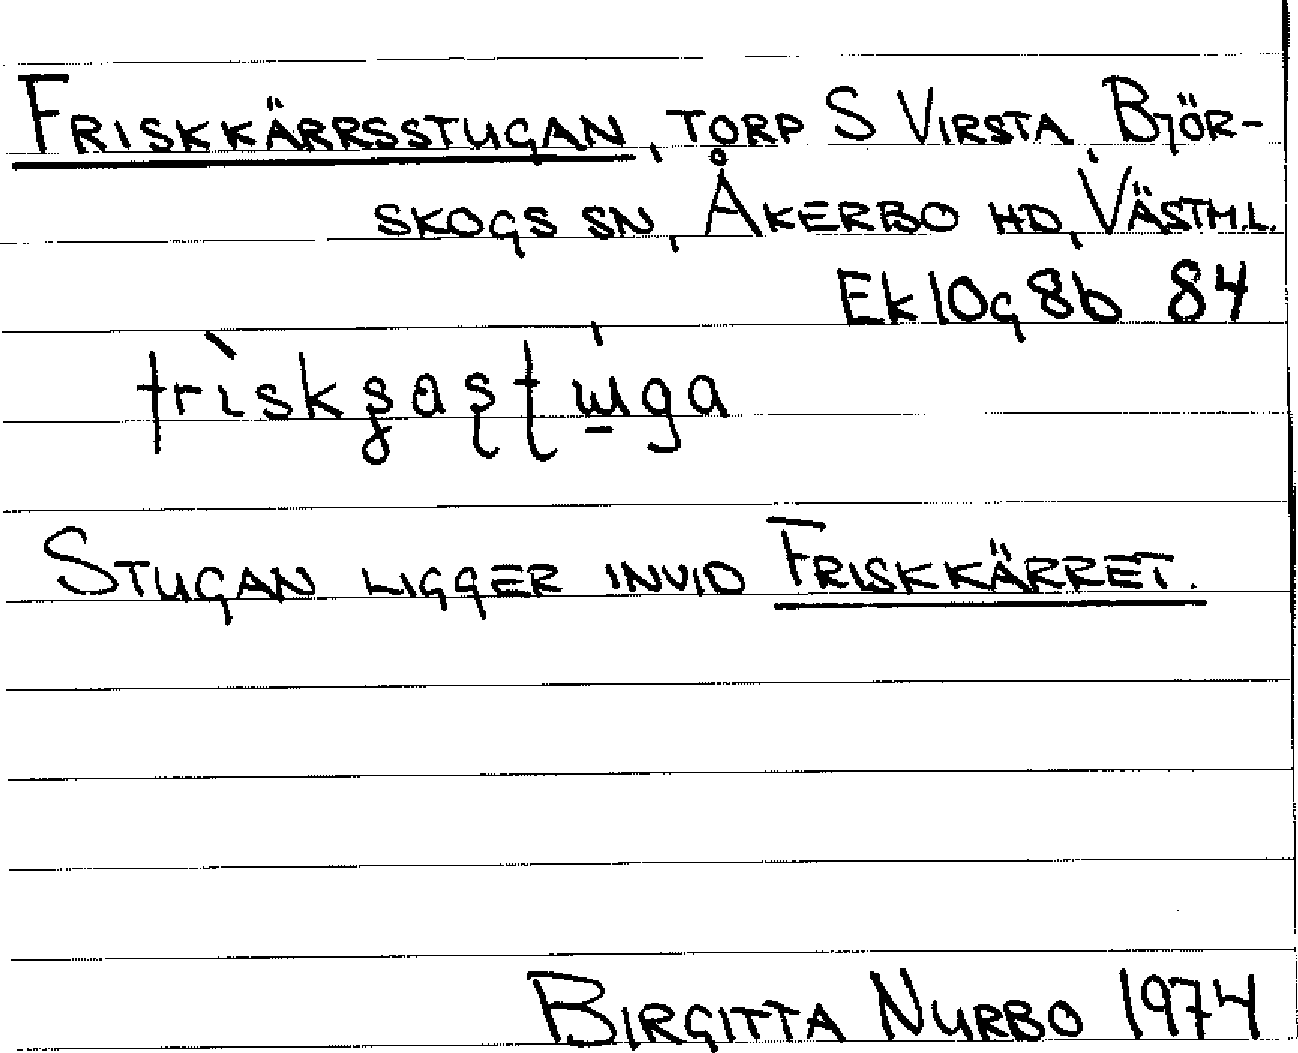 FRISKKÄRRSSTUGAN, TORP S VIRSTA, BJÖR-
SKOGS SN, ÅKERBO HD, VÄSTM.L.
Ek 10g 8b 84
STUGAN LIGGER INVID FRISKKÄRRET.
BIRGITTA NURBO 1974